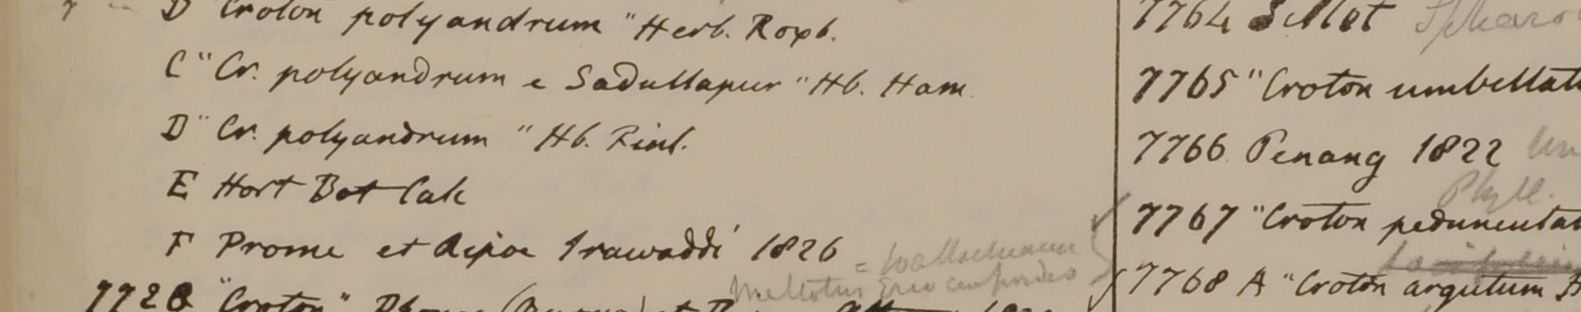 D "Croton polyandrum" Herb. Roxb.
C "Cr. polyandrum e Sadullapur" Hb. Ham
D "Cr. polyandrum" Hb. Finl.
E Hort Bot Calc
F Prome et Ripae Irawaddi 1826
= Wallichiana
Mallotus
7728 "Croton"
7764 Sillet
7765 "Croton umbellat
7766 Penang 1822
Phyll.
7767 "Croton pedunculat
7768 A "Croton argutum H